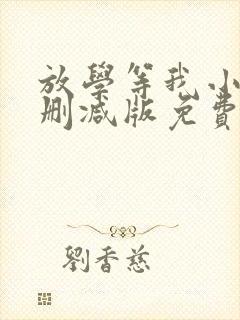 放學等我小
删减版免費
劉香慈